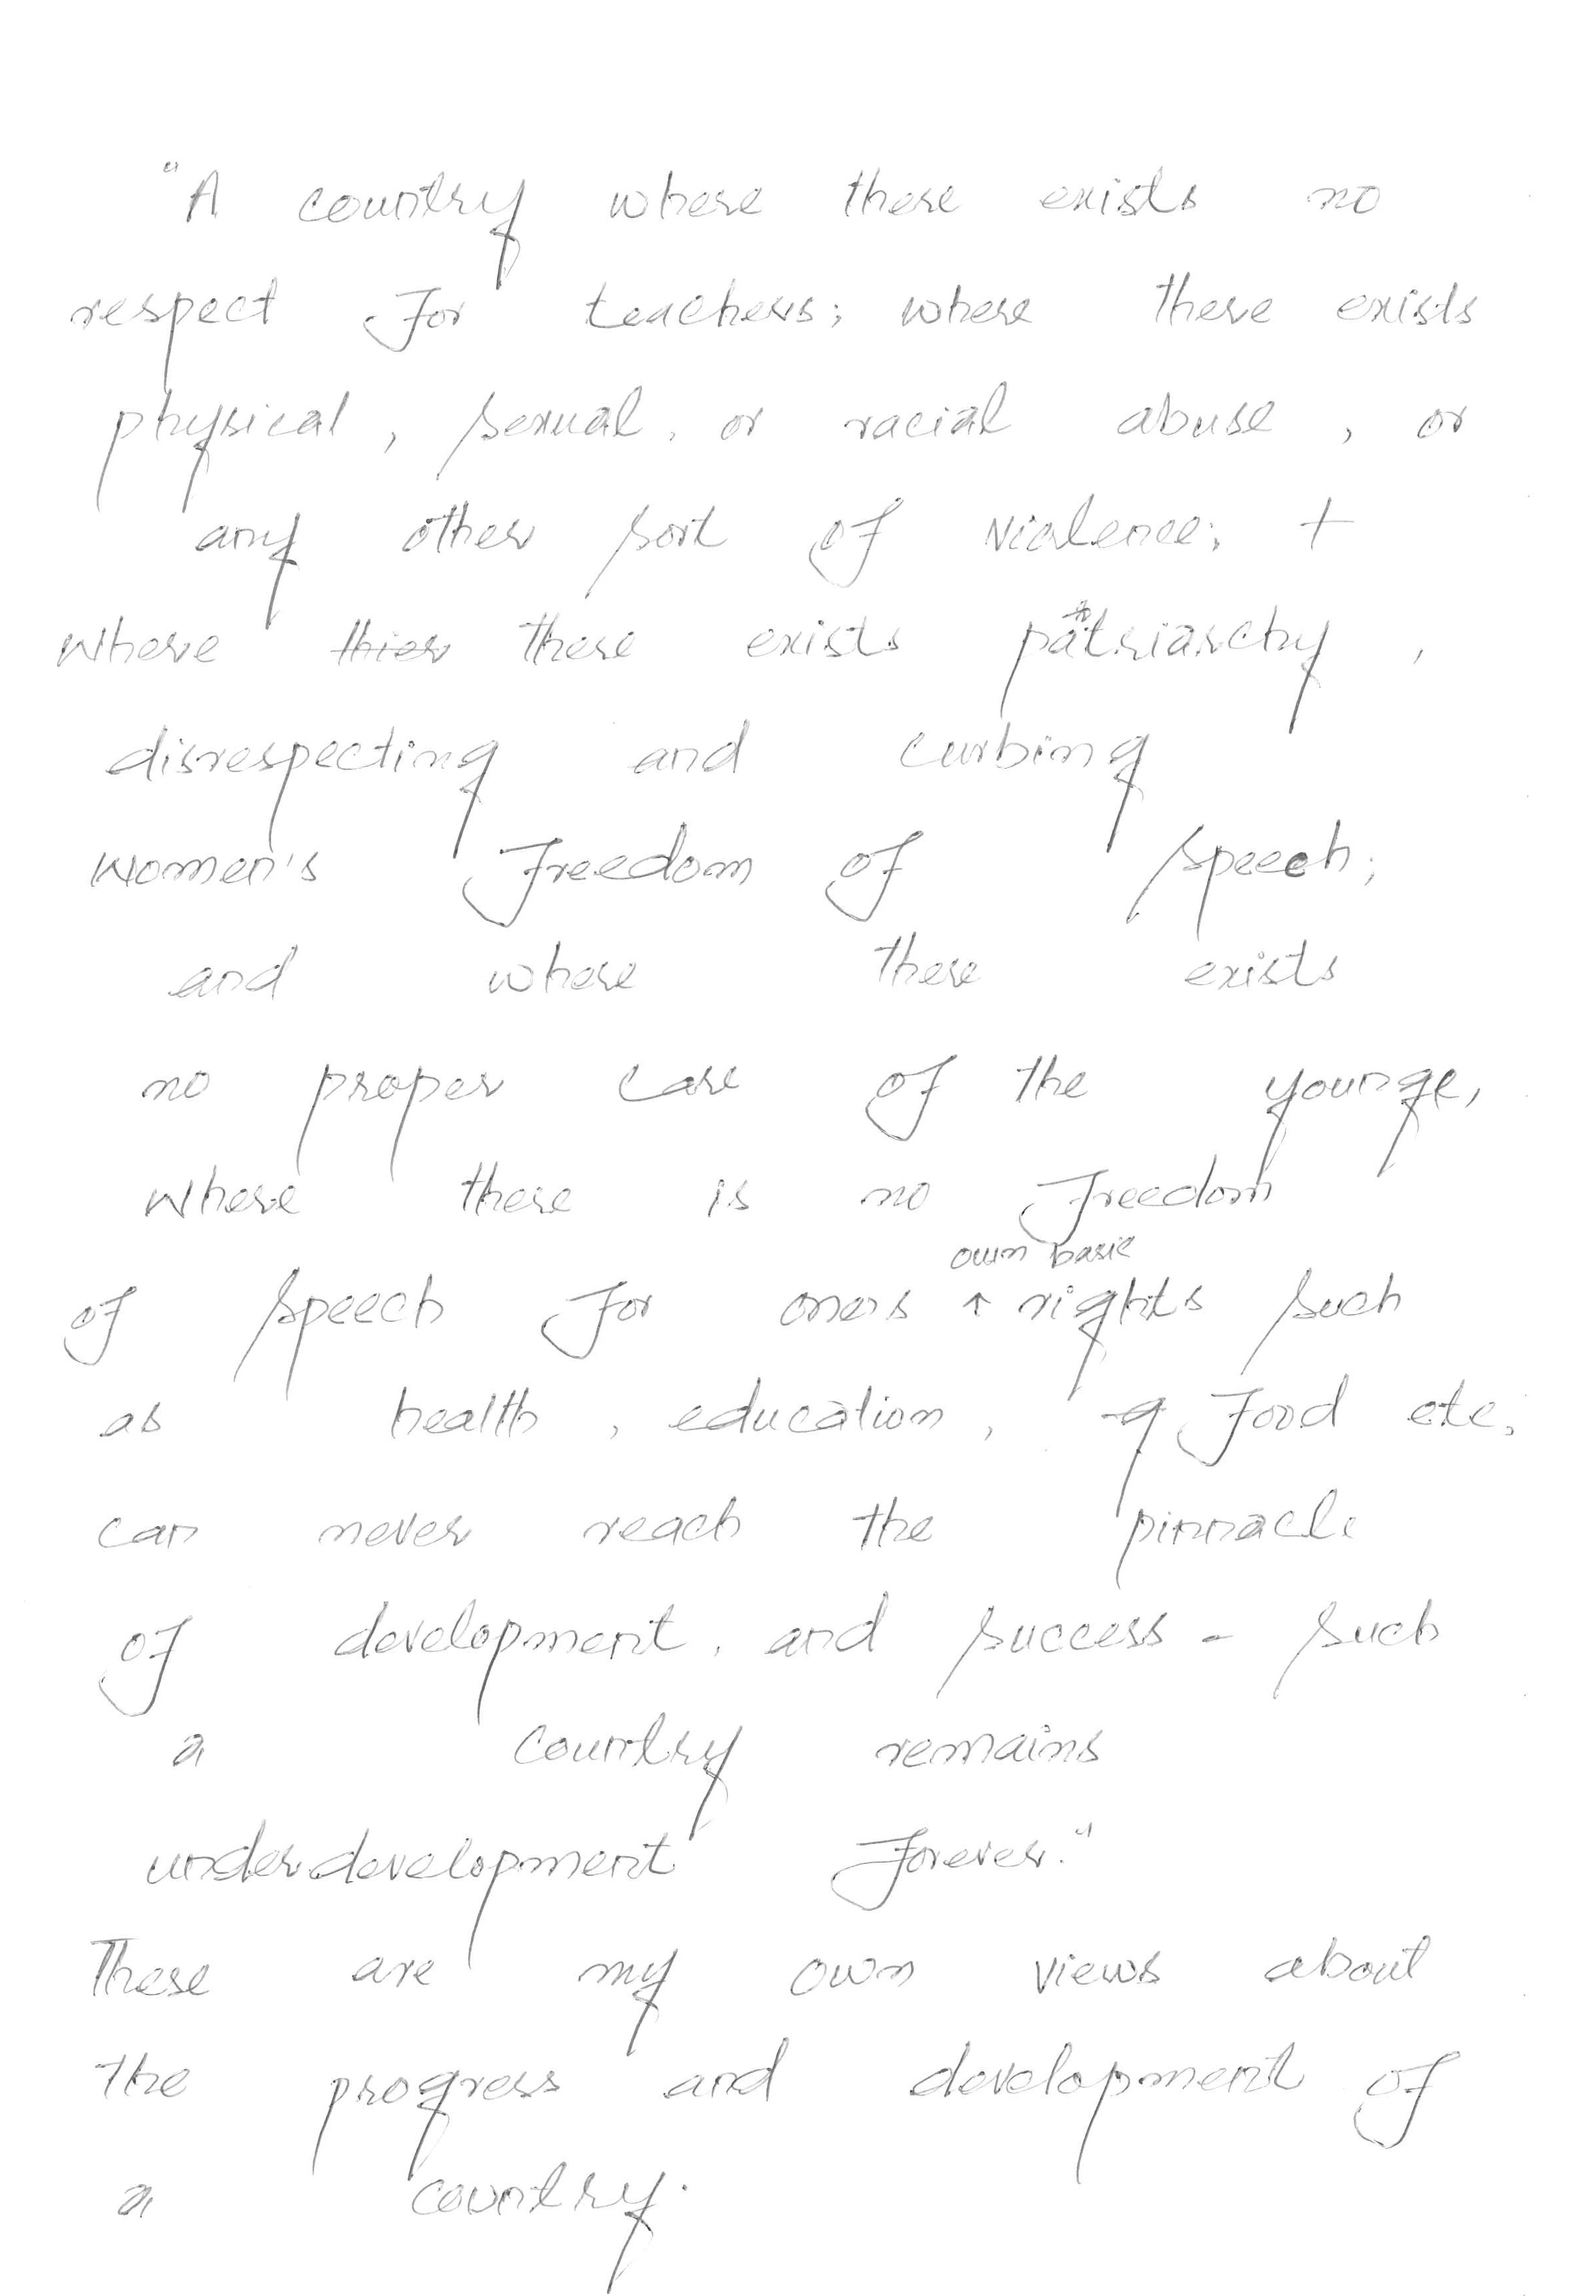 "A country where there exists no
respect for teachers; where there exists
physical, sexual, or racial abuse, or
any other sort of violence; +
where thier there exists patriarchy,
disrespecting and curbing
women's freedom of speech;
and where there exists
no proper care of the younge,
where there is no freedom
own basic
of speech for ones ↑ rights such
as health, education, food etc,
can never reach the pinnacle
of development, and success - such
a country remains
underdevelopment forever."
These are my own views about
the progress and development of
a country.